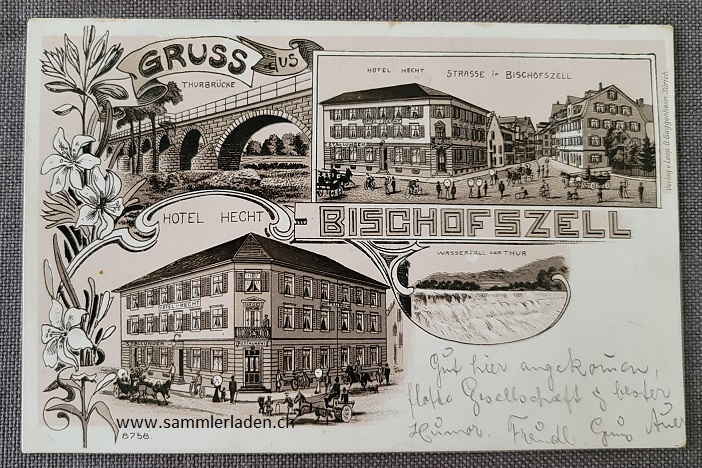 GRUSS AUS
THURBRÜCKE
HOTEL HECHT STRASSE in BISCHOFSZELL
HOTEL HECHT
BISCHOFSZELL
WASSERFALL DER THUR
Verlag v. Leop. D. Guggenheim, Zürich.
HOTEL z. HECHT
RESTAURANT
Gut hier angekommen,
flotte Gesellschaft & bester
Humor. Freundl. Gruss
www.sammlerladen.ch
8758.